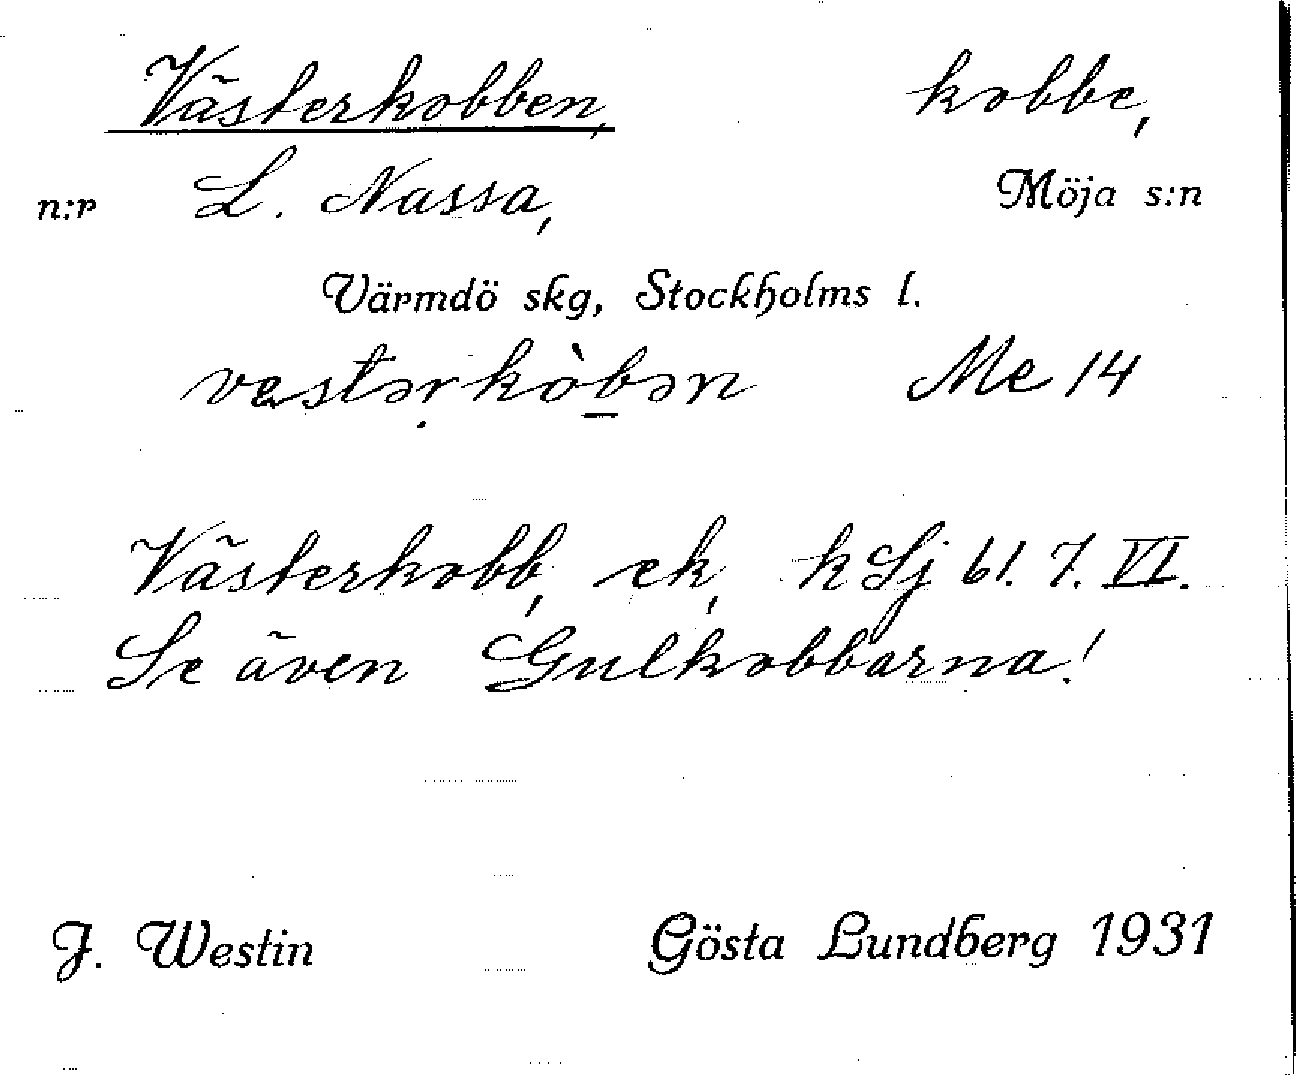 Västerkobben, kobbe,
n:r L. Nassa, Möja s:n
Värmdö skg, Stockholms l.
vestərkòbən Me 14
Västerkobb, ek, k Sj bl. 7. VI.
Se även Gulkobbarna!
J. Westin Gösta Lundberg 1931